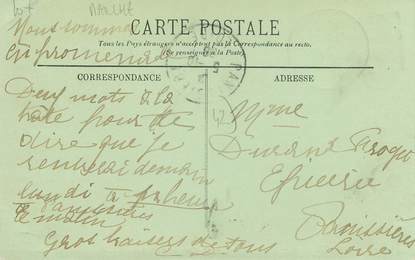 Nous sommes
en promenade
CARTE POSTALE
Tous les Pays étrangers n'acceptent pas la Correspondance au recto.
(Se renseigner à la Poste).
CORRESPONDANCE
Deux mots à la
hate pour te
dire que je
rentrerai demain
lundi à
le matin
Gros baisers de tous
ADRESSE
Mme
Durand
Epicerie
Panissières
Loire